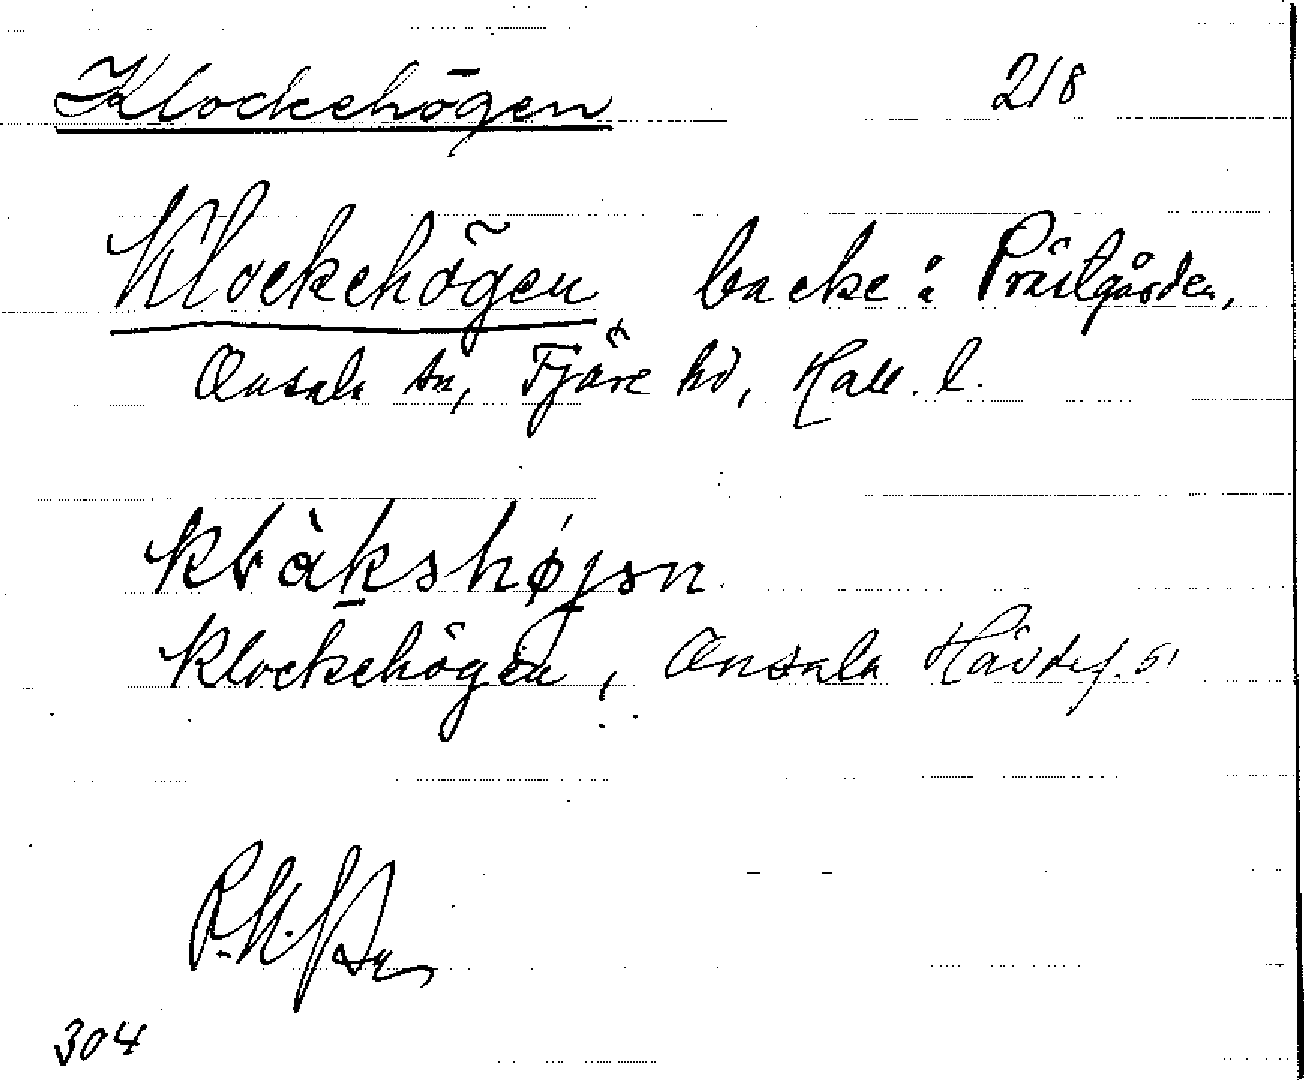 Klockehögen 218
Klockehögen backe i Prästgården,
Onsala sn, Fjäre hd, Hall. l.
klåkshøjən
Klockehögen, Onsala Hävdef. 51
304